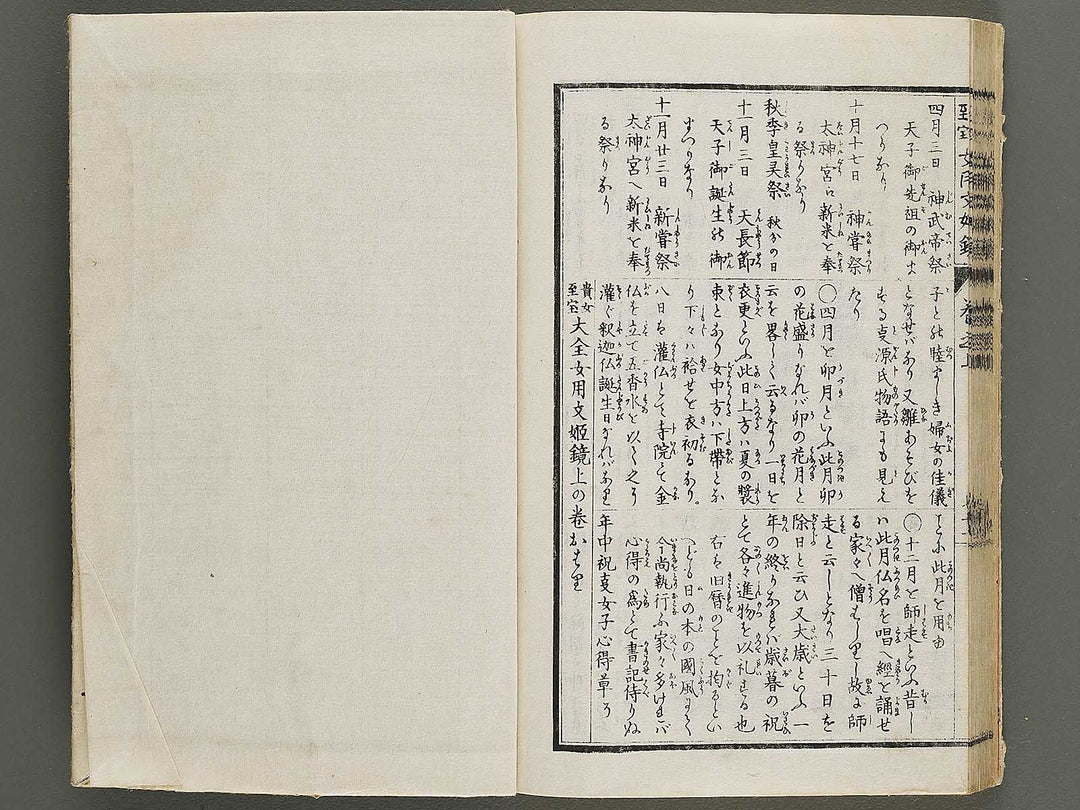 四月三日　神武帝祭
天子御先祖の御ま
つりなり
十月十七日　神嘗祭
太神宮に新米を奉
る祭りなり
秋季皇灵祭　秋分の日
十一月三日　天長節
天子御誕生の御
まつりなり
十一月廿三日　新嘗祭
太神宮へ新米を奉
る祭りなり
子との睦ましき婦女の佳儀
となせばなり又雛あそびを
する叓源氏物語にも見え
たり
〇四月を卯月といふ此月卯
の花盛りなれバ卯の花月と
云を畧して云るなり一日を
衣更といふ此日上方ハ夏の裝
束となり女中方ハ下帯となり
り下々ハ袷せを衣初るなり。
八日を灌仏とて寺院にて金
仏を立て五香水を以て之に
灌ぐ釈迦仏誕生日なれバなり
といふ此月を用由
〇十二月を師走といふ昔し
ハ此月仏名を唱へ經を誦せ
る家々へ僧をはしりし故に師
走と云しとなり三十日を
除日と云ひ又大歳といふ一
年の終りなれバ歳暮の祝
とて各々進物を以礼する也
右は旧暦のことを拘るとい
へども日の本の國風にして
今尚執行ふ家々多ければ
心得の爲とて書記侍りぬ
年中祝叓女子心得草
貴女至宝大全女用文姫鏡上の巻おはり